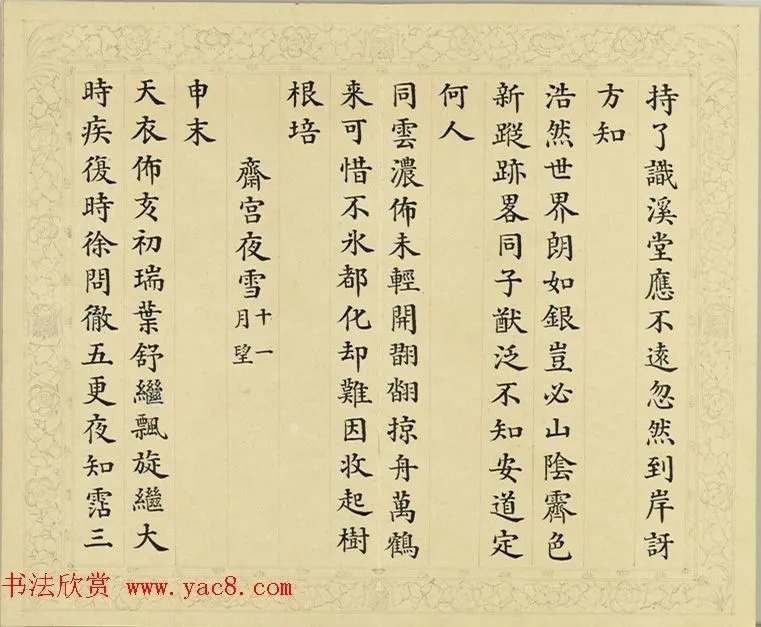 持了識溪堂應不遠忽然到岸訝
方知
浩然世界朗如銀豈必山陰霽色
新蹤跡畧同子猷泛不知安道定
何人
同雲濃佈未輕開翩翻掠舟萬鶴
来可惜不氷都化却難因收起樹
根培
齋宮夜雪十一月望
申末
天衣佈亥初瑞葉舒繼飄旋繼大
時疾復時徐問徹五更夜知霑三
书法欣赏 www.yac8.com